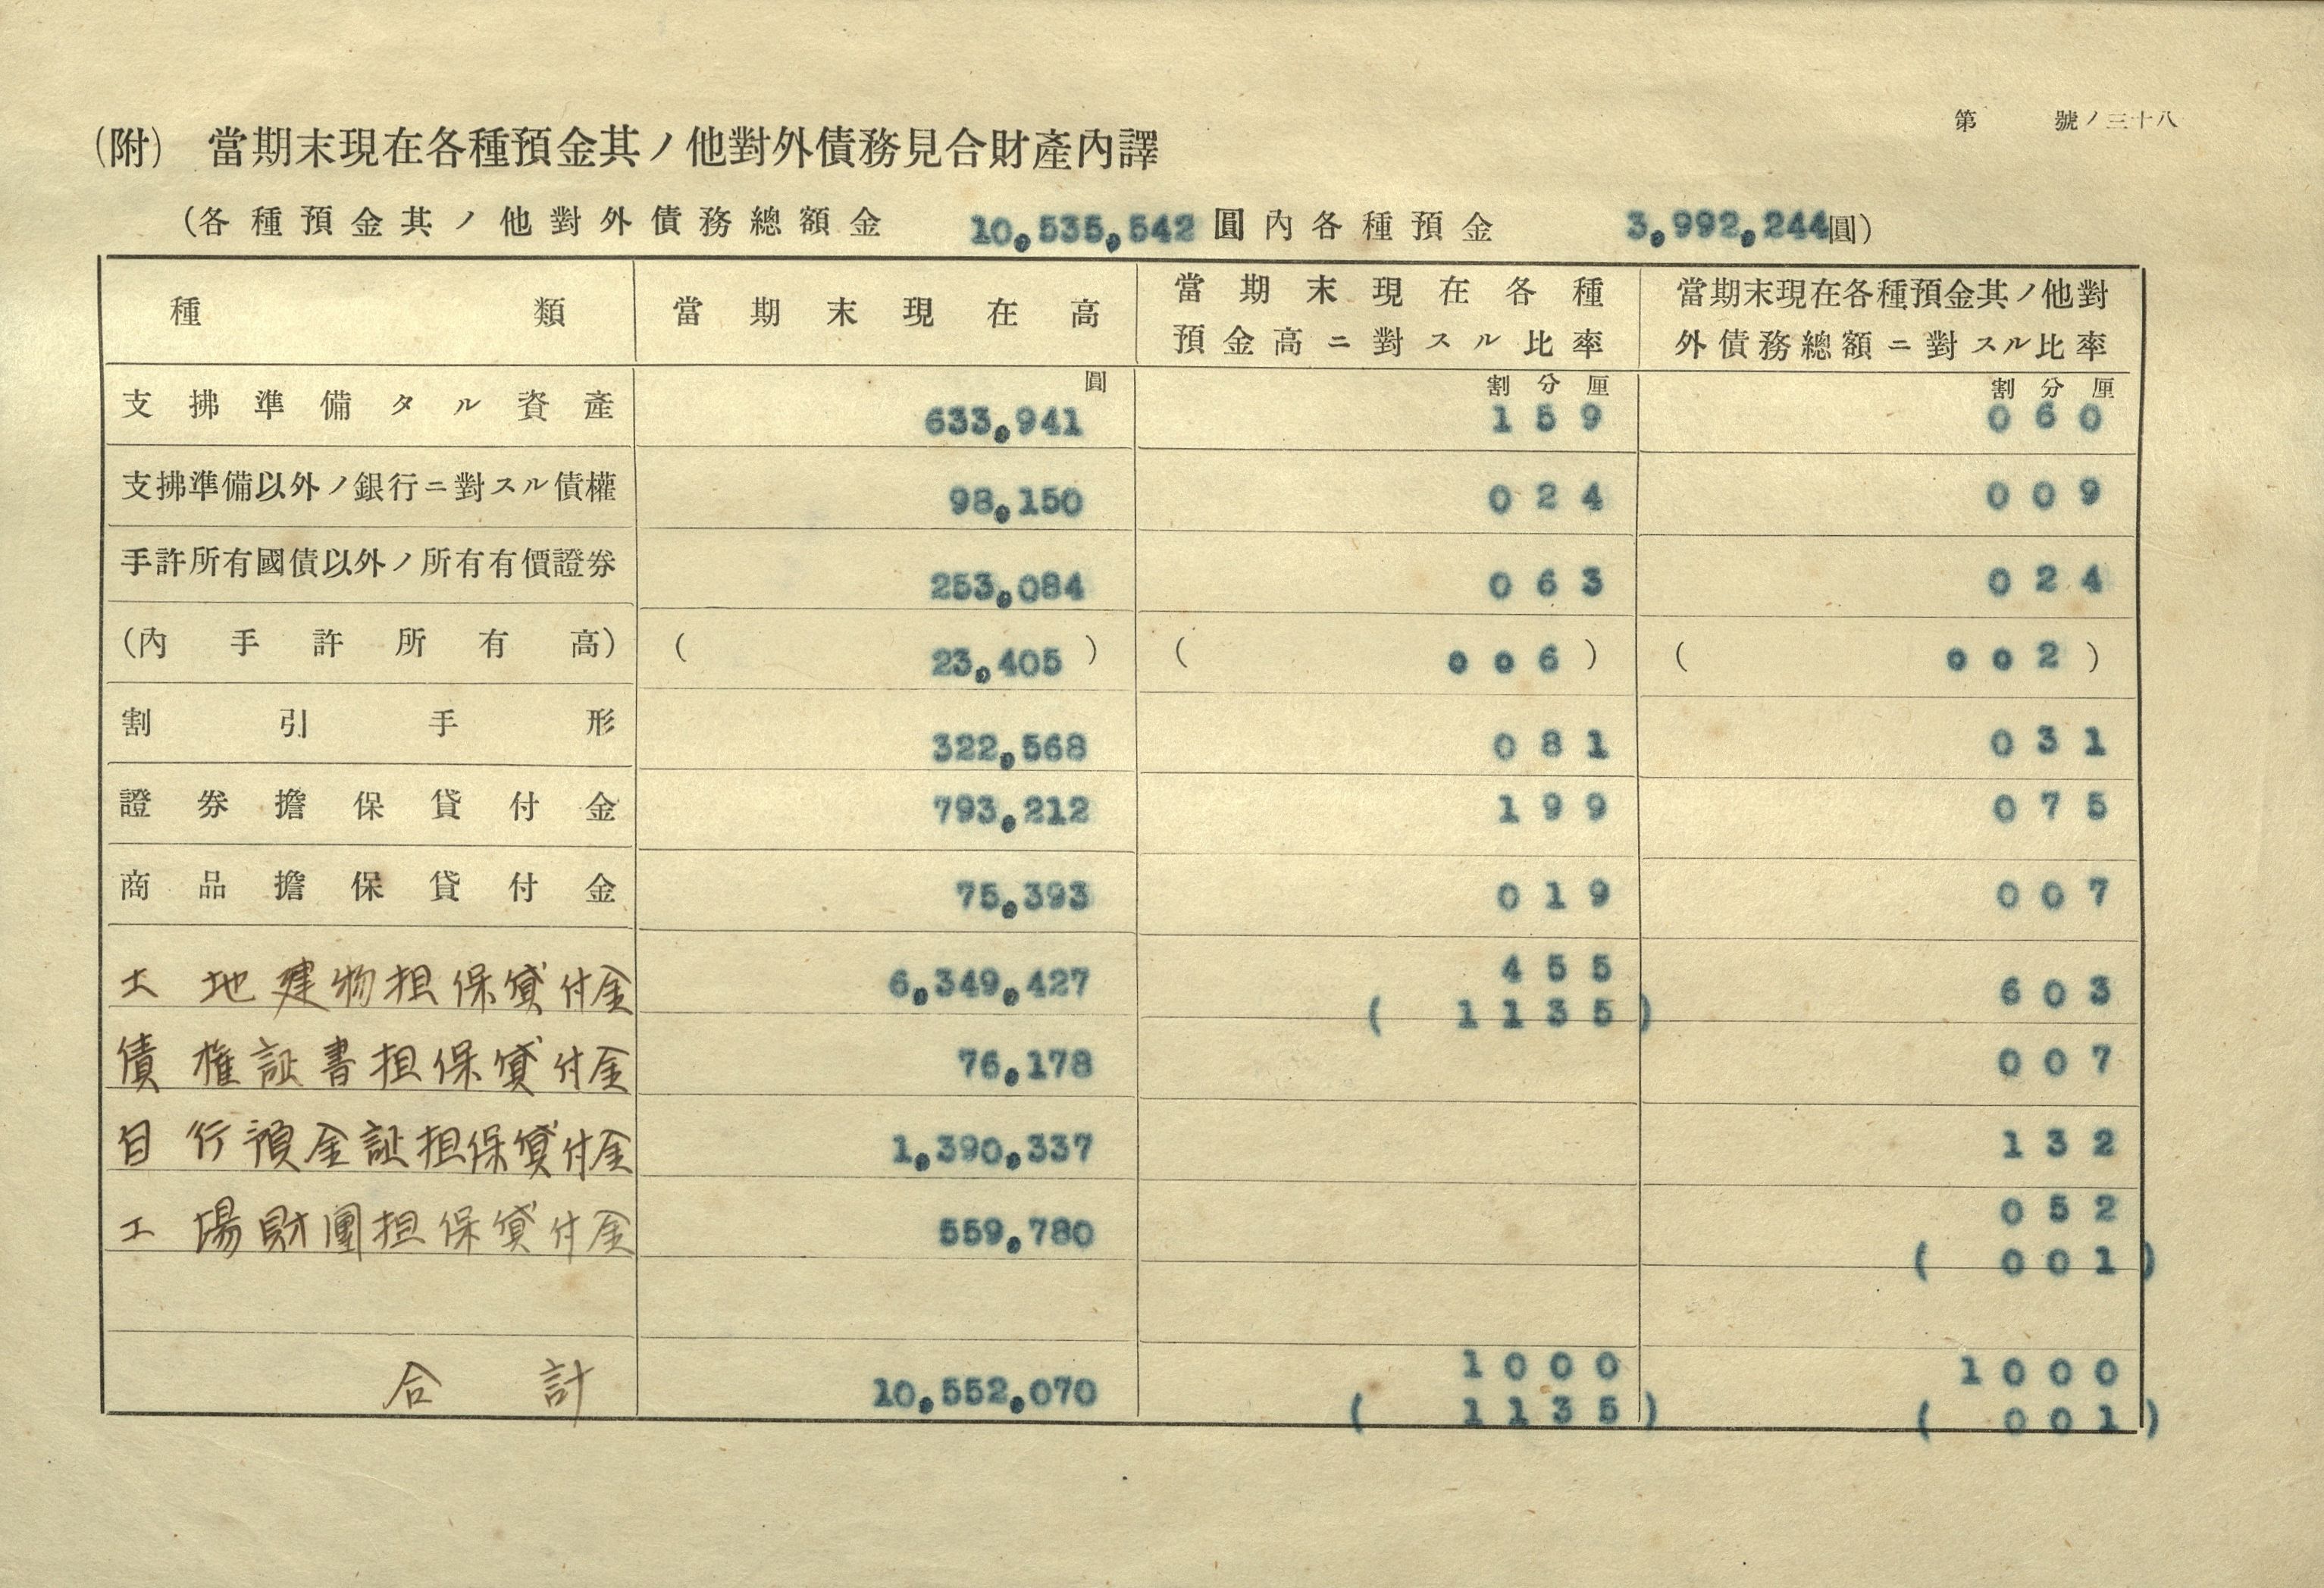 第　　號ノ三十八
(附)　當期末現在各種預金其ノ他對外債務見合財產內譯
(各種預金其ノ他對外債務總額金　10,535,542圓內各種預金　3,992,244圓)
種類　當期末現在高　當期末現在各種預金高ニ對スル比率　當期末現在各種預金其ノ他對外債務總額ニ對スル比率
圓　割分厘　割分厘
支拂準備タル資產　633,941　159　060
支拂準備以外ノ銀行ニ對スル債權　98,150　024　009
手許所有國債以外ノ所有有價證券　253,084　063　024
(內手許所有高)　(23,405)　(006)　(002)
割引手形　322,568　081　031
證券擔保貸付金　793,212　199　075
商品擔保貸付金　75,393　019　007
土地建物担保貸付金　6,349,427　455　603
(1135)
債権証書担保貸付金　76,178　007
自行預金証担保貸付金　1,390,337　132
工場財團担保貸付金　559,780　052
(001)
合計　10,552,070　1000　1000
(1135)　(001)